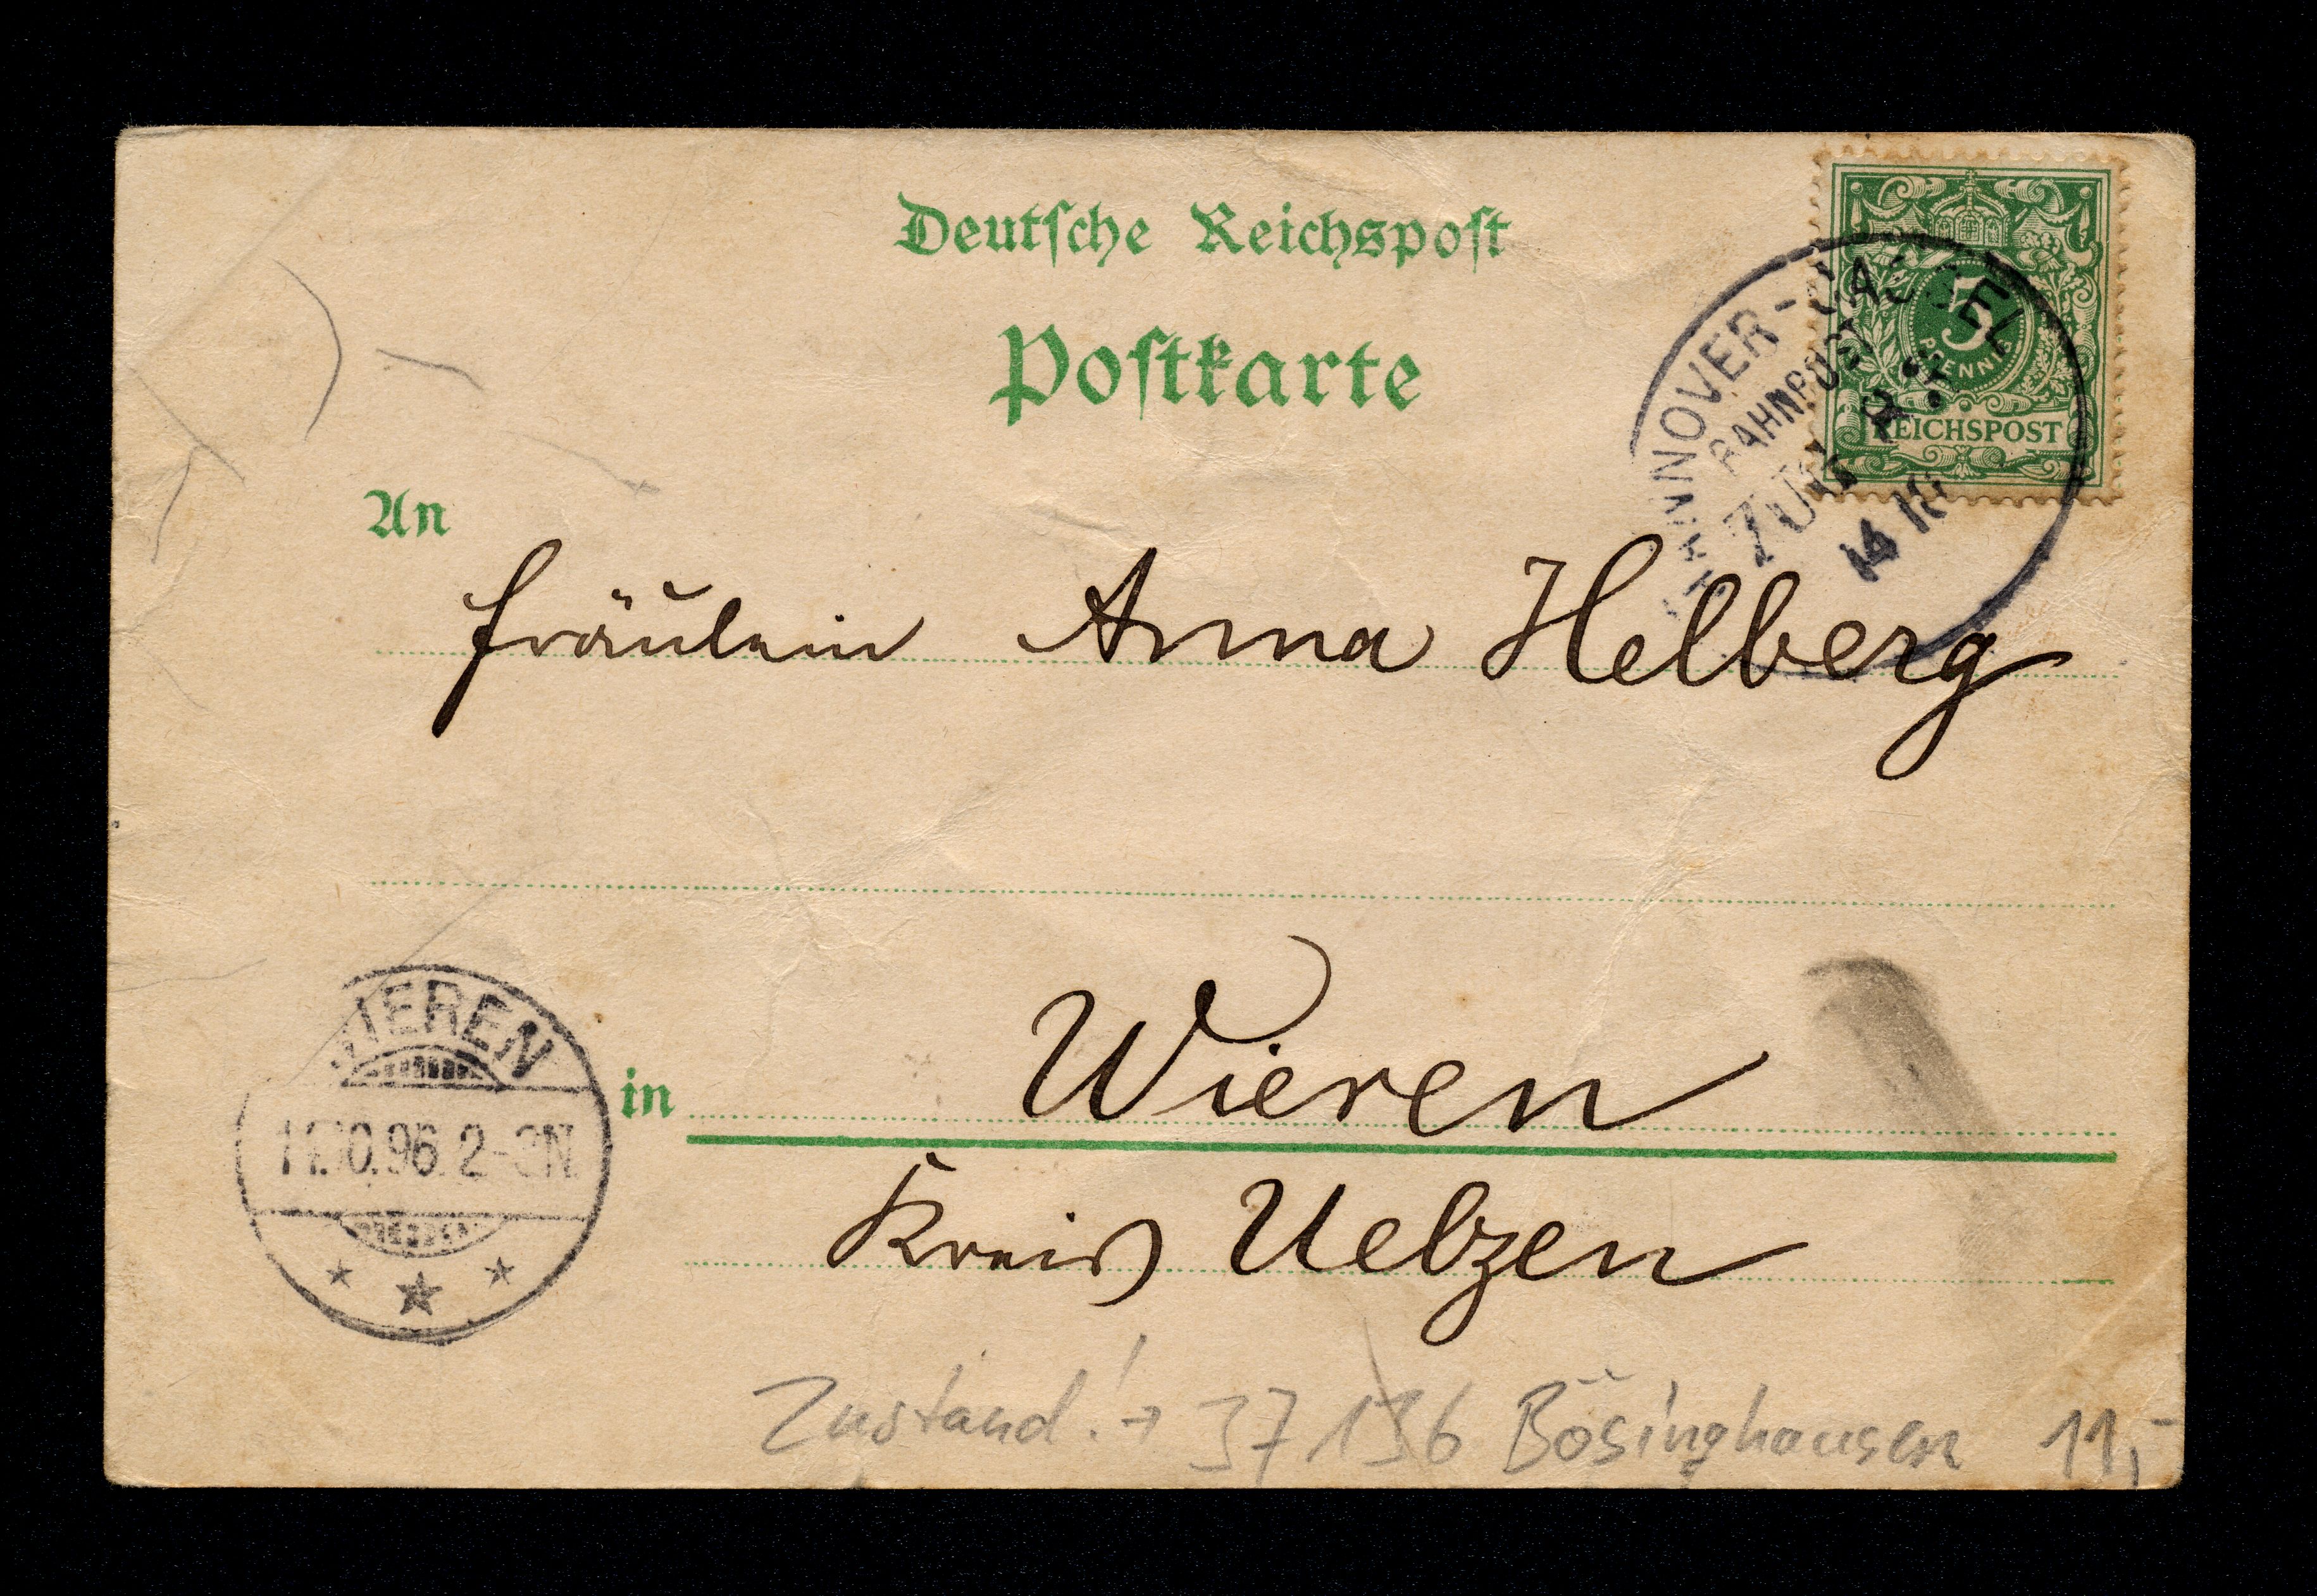 Deutsche Reichspost
Postkarte
5
PFENNIG
REICHSPOST
HANNOVER-CASSEL
BAHNPOST
ZUG
An
Fräulein Anna Helberg
in Wieren
Kreis Uelzen
WIEREN
10.96. 2-3N.
Zustand! → 37136 Bösinghausen 11,-